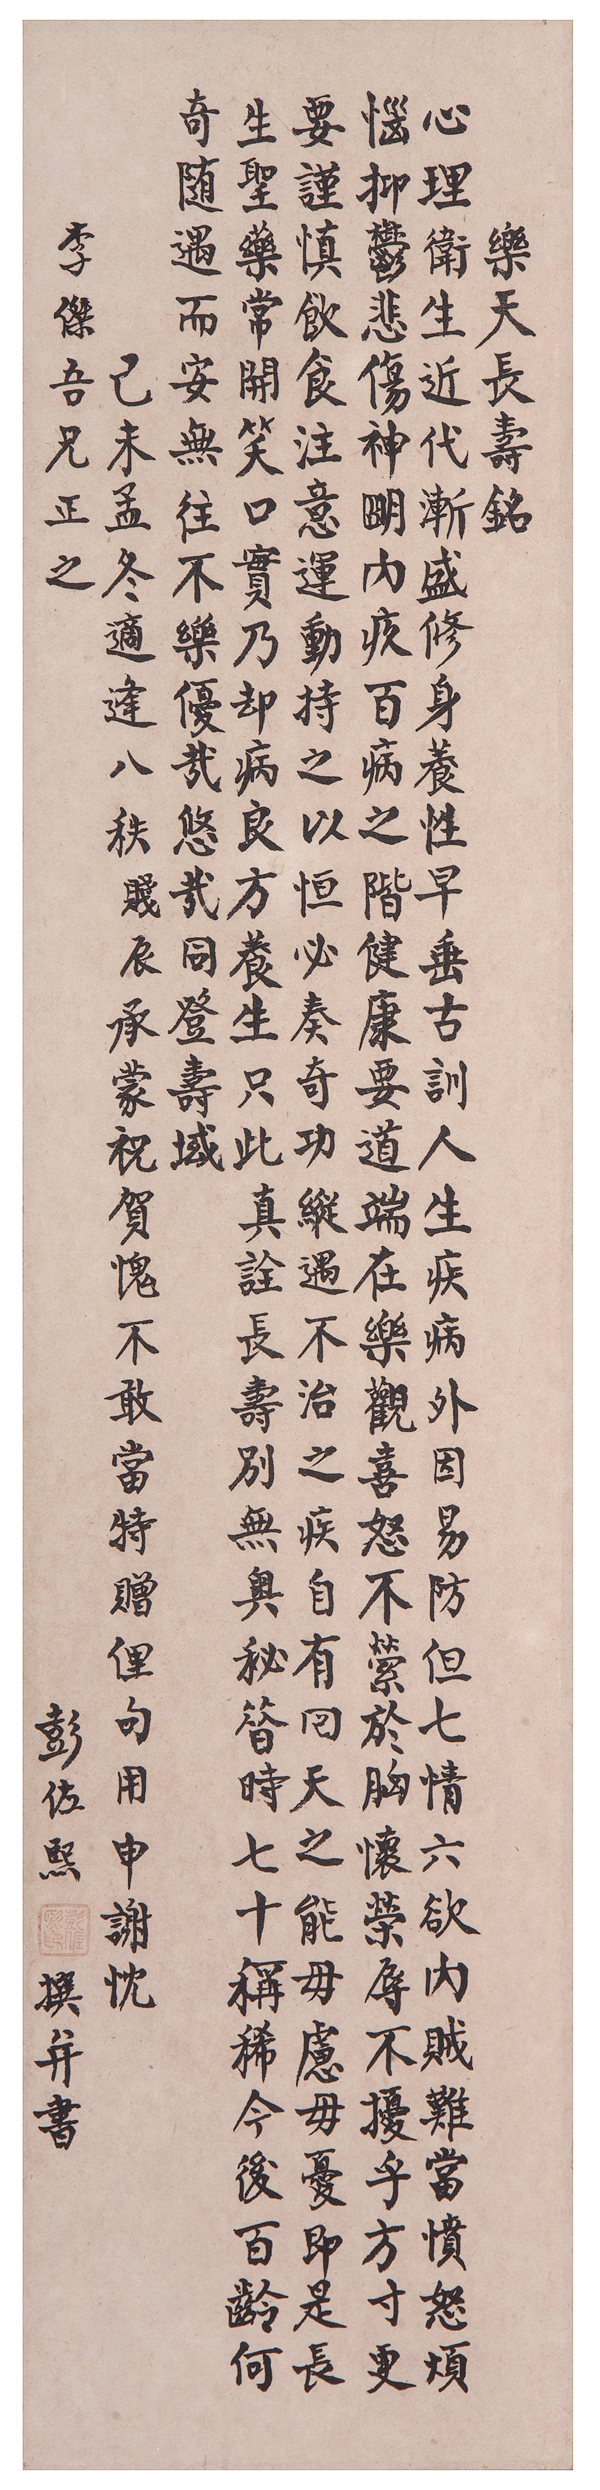 樂天長壽銘
心理衛生近代漸盛修身養性早垂古訓人生疾病外因易防但七情六欲內賊難當憤怒煩
惱抑鬱悲傷神明內疚百病之階健康要道端在樂觀喜怒不縈於胸懷榮辱不擾乎方寸更
要謹慎飲食注意運動持之以恒必奏奇功縱遇不治之疾自有回天之能毋慮毋憂即是長
生聖藥常開笑口實乃却病良方養生只此真詮長壽別無奧秘昝時七十稱稀今後百齡何
奇隨遇而安無往不樂優哉悠哉同登壽域
己未孟冬適逢八秩賤辰承蒙祝賀愧不敢當特贈俚句用申謝忱
李傑吾兄正之
彭佐熙
撰并書